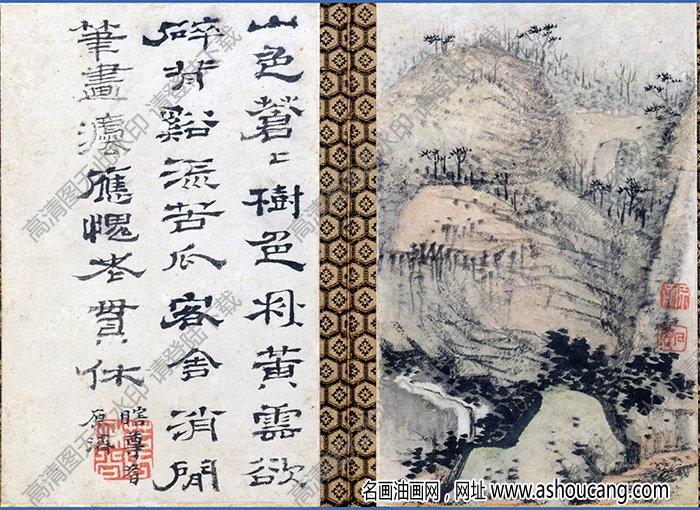 山色蒼〻樹色秋黃雲欲
碎背谿流苦瓜客舍消閒
筆畫灋應愧老貫休
瞎尊者
原濟
高清图无水印 请登陆下载
名画油画网,网址 www.ashoucang.com